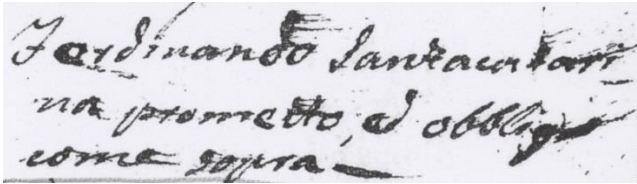 Ferdinando Santacatari
na prometto, ed obbligo
come sopra